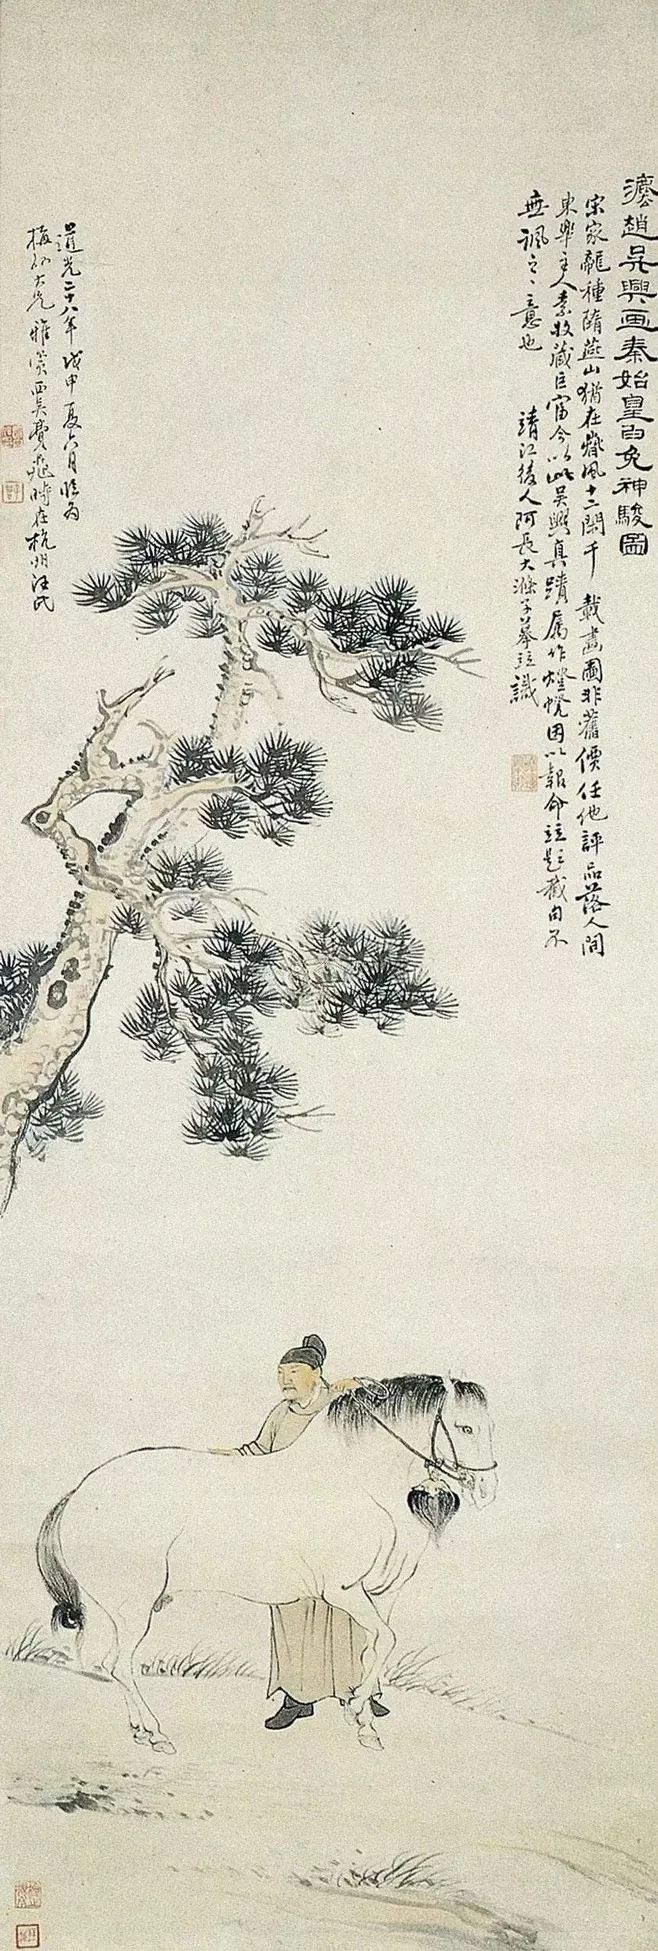 趙吳興画秦始皇白兔神駿圖
宋家龍種隋燕山猶在嘶風十二閑千載畫圖非舊價任他評品落人間
東皋主人素收藏巨富今以此吳興真蹟属作燈幌因以報命並題截句不
無諷之之意也
靖江後人阿長大滌子摹並識
道光二十八年戊申夏六月臨為
梅仙大兄雅賞西吳費丹旭時在杭州汪氏